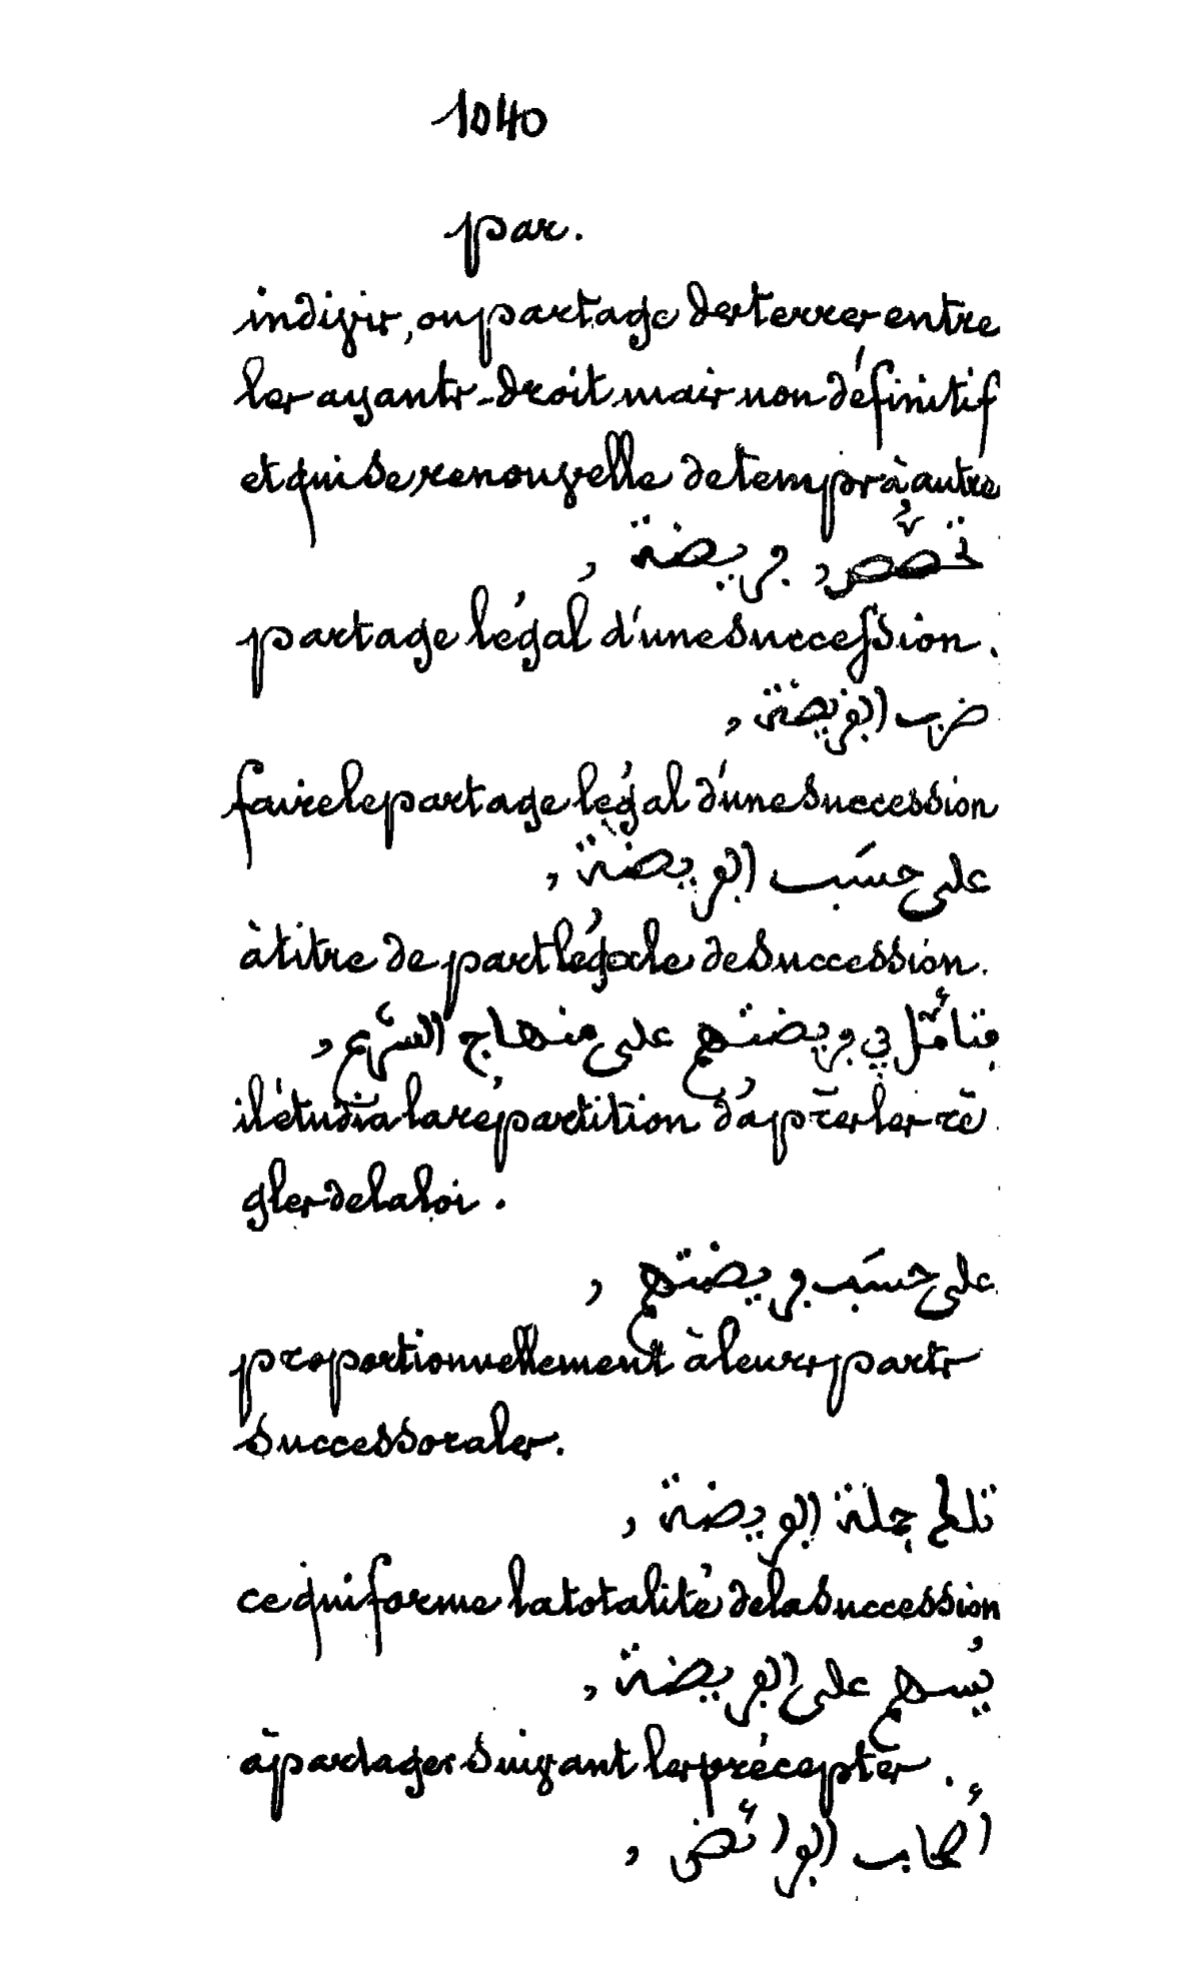 1040
par.
indivis, ou partage des terres entre
les ayants-droit mais non définitif
et qui se renouvelle de temps à autre
تَخَصُّص, ڢريضة,
partage légal d'une succession.
ضرب الڢريضة,
faire le partage légal d'une succession
على حسَب الڢريضة,
à titre de part légale de succession.
ڢتأمّل في ڢريضتهم على منهاج الشرع,
il étudia la répartition d'après les rè
gles de la loi.
على حسَب ڢريضتهم,
proportionnellement à leurs parts
successorales.
جملة الڢريضة,
ce qui forme la totalité de la succession
يُسهم على الڢريضة,
à partager suivant les préceptes.
أصحاب الڢرائض,